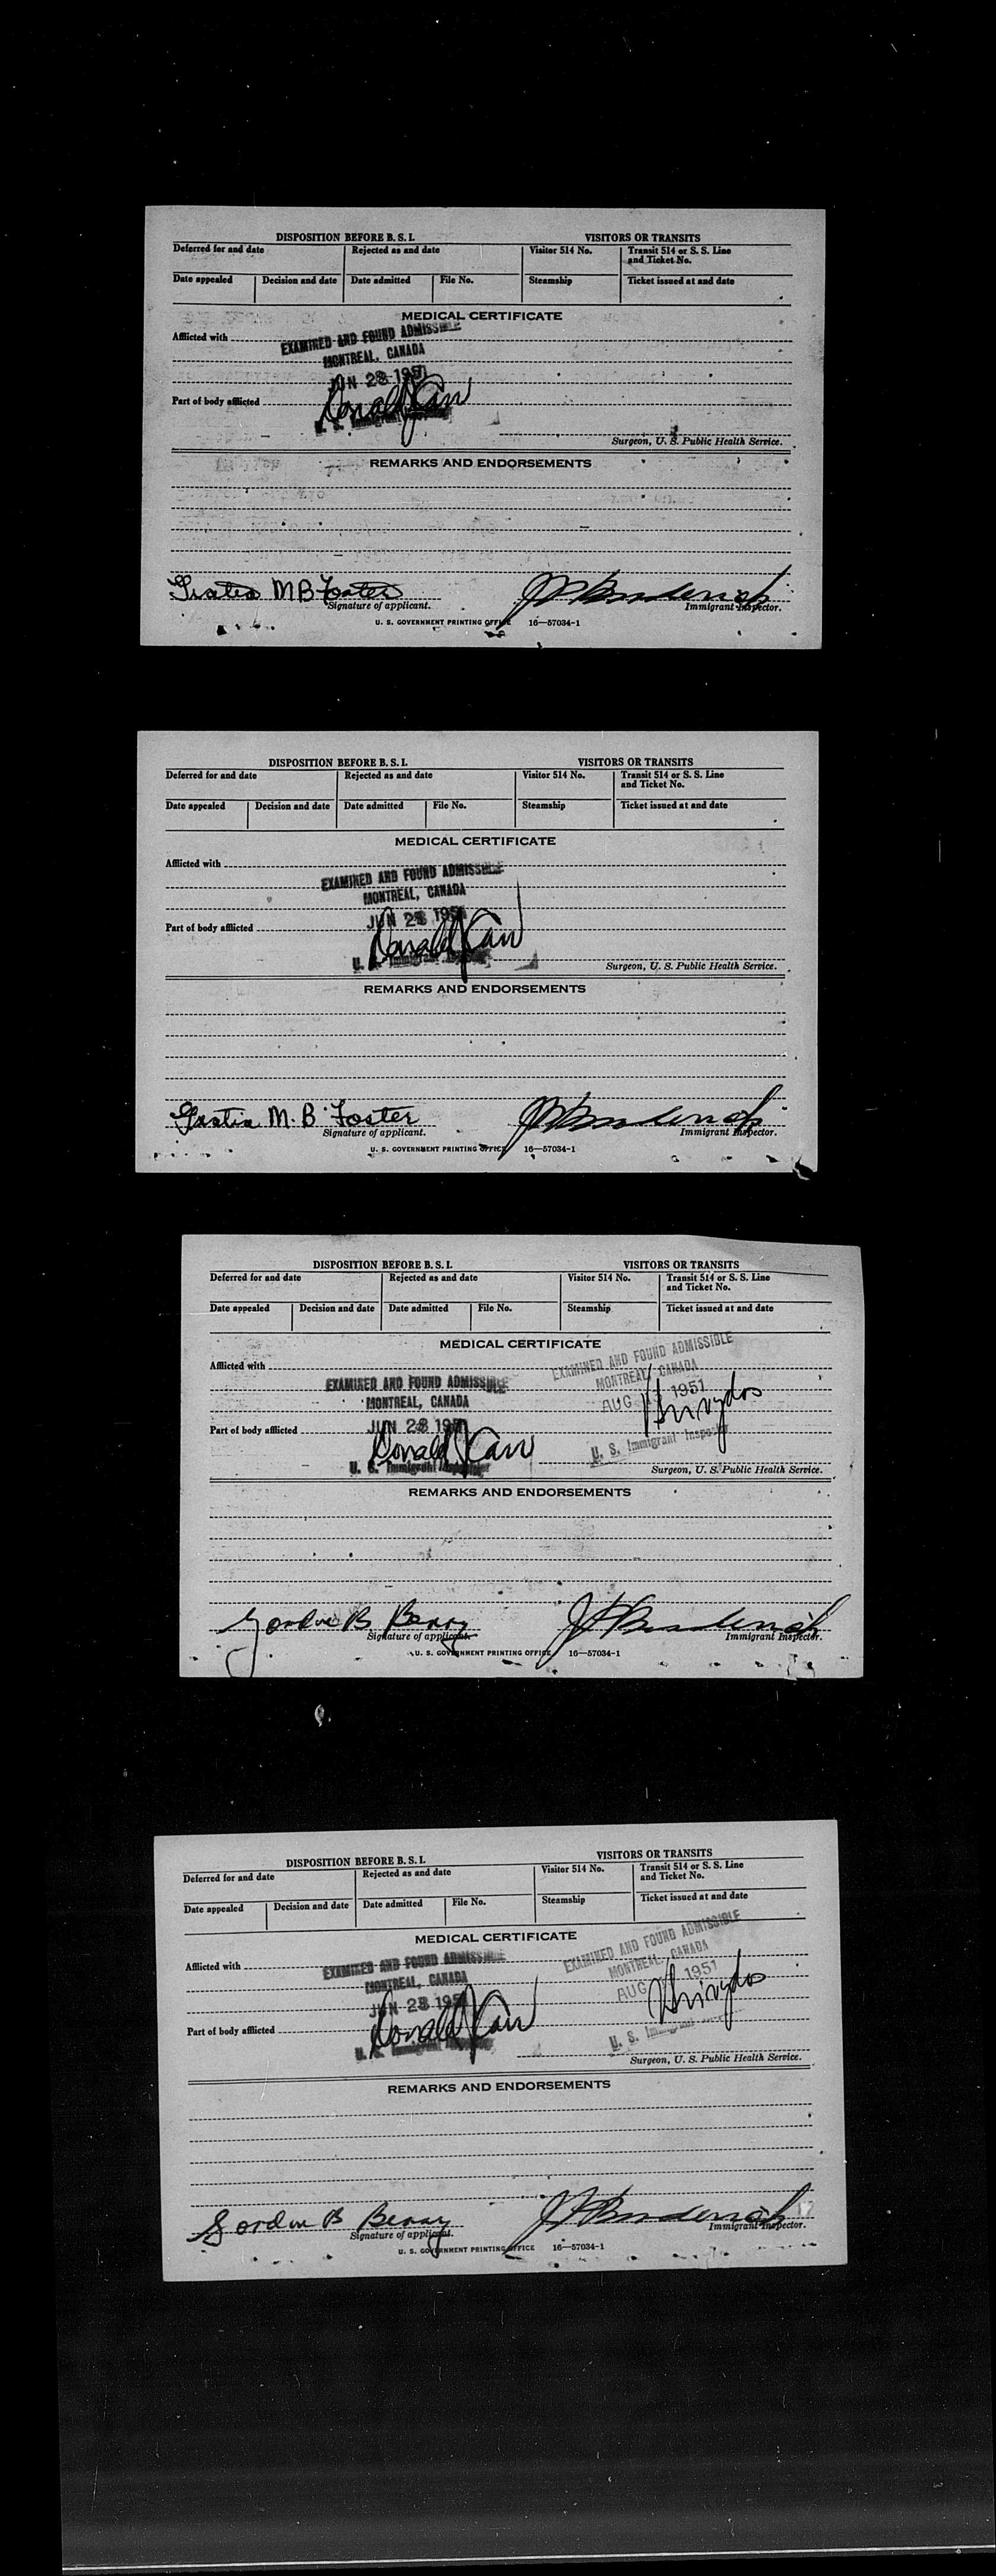 DISPOSITION BEFORE B. S. I. VISITORS OR TRANSITS
Deferred for and date Rejected as and date Visitor 514 No. Transit 514 or S. S. Line and Ticket No.
Date appealed Decision and date Date admitted File No. Steamship Ticket issued at and date
MEDICAL CERTIFICATE
Afflicted with
EXAMINED AND FOUND ADMISSIBLE
MONTREAL, CANADA
JUN 28 1951
Part of body afflicted
Donald Carr
U. S. Immigrant Inspector
Surgeon, U. S. Public Health Service.
REMARKS AND ENDORSEMENTS
M B Foster
Signature of applicant. Immigrant Inspector.
U. S. GOVERNMENT PRINTING OFFICE 16—57034-1
DISPOSITION BEFORE B. S. I. VISITORS OR TRANSITS
Deferred for and date Rejected as and date Visitor 514 No. Transit 514 or S. S. Line and Ticket No.
Date appealed Decision and date Date admitted File No. Steamship Ticket issued at and date
MEDICAL CERTIFICATE
Afflicted with
EXAMINED AND FOUND ADMISSIBLE
MONTREAL, CANADA
JUN 28 1951
Part of body afflicted
Donald Carr
U. S. Immigrant Inspector
Surgeon, U. S. Public Health Service.
REMARKS AND ENDORSEMENTS
M. B. Foster
Signature of applicant. Immigrant Inspector.
U. S. GOVERNMENT PRINTING OFFICE 16—57034-1
DISPOSITION BEFORE B. S. I. VISITORS OR TRANSITS
Deferred for and date Rejected as and date Visitor 514 No. Transit 514 or S. S. Line and Ticket No.
Date appealed Decision and date Date admitted File No. Steamship Ticket issued at and date
MEDICAL CERTIFICATE
Afflicted with
EXAMINED AND FOUND ADMISSIBLE EXAMINED AND FOUND ADMISSIBLE
MONTREAL, CANADA MONTREAL, CANADA
JUN 28 1951 AUG 1951
Part of body afflicted
Donald Carr
U. S. Immigrant Inspector U. S. Immigrant Inspector
Surgeon, U. S. Public Health Service.
REMARKS AND ENDORSEMENTS
Gordon B. Berry
Signature of applicant. Immigrant Inspector.
U. S. GOVERNMENT PRINTING OFFICE 16—57034-1
DISPOSITION BEFORE B. S. I. VISITORS OR TRANSITS
Deferred for and date Rejected as and date Visitor 514 No. Transit 514 or S. S. Line and Ticket No.
Date appealed Decision and date Date admitted File No. Steamship Ticket issued at and date
MEDICAL CERTIFICATE
Afflicted with
EXAMINED AND FOUND ADMISSIBLE EXAMINED AND FOUND ADMISSIBLE
MONTREAL, CANADA MONTREAL, CANADA
JUN 28 1951 AUG 1951
Part of body afflicted
Donald Carr
U. S. Immigrant Inspector U. S.
Surgeon, U. S. Public Health Service.
REMARKS AND ENDORSEMENTS
Gordon B Berry
Signature of applicant. Immigrant Inspector.
U. S. GOVERNMENT PRINTING OFFICE 16—57034-1